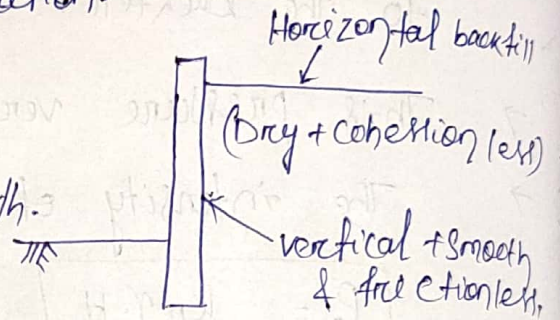 Horizontal backfill
(Dry + Cohesion less)
th.
vertical + Smooth
& frictionless.